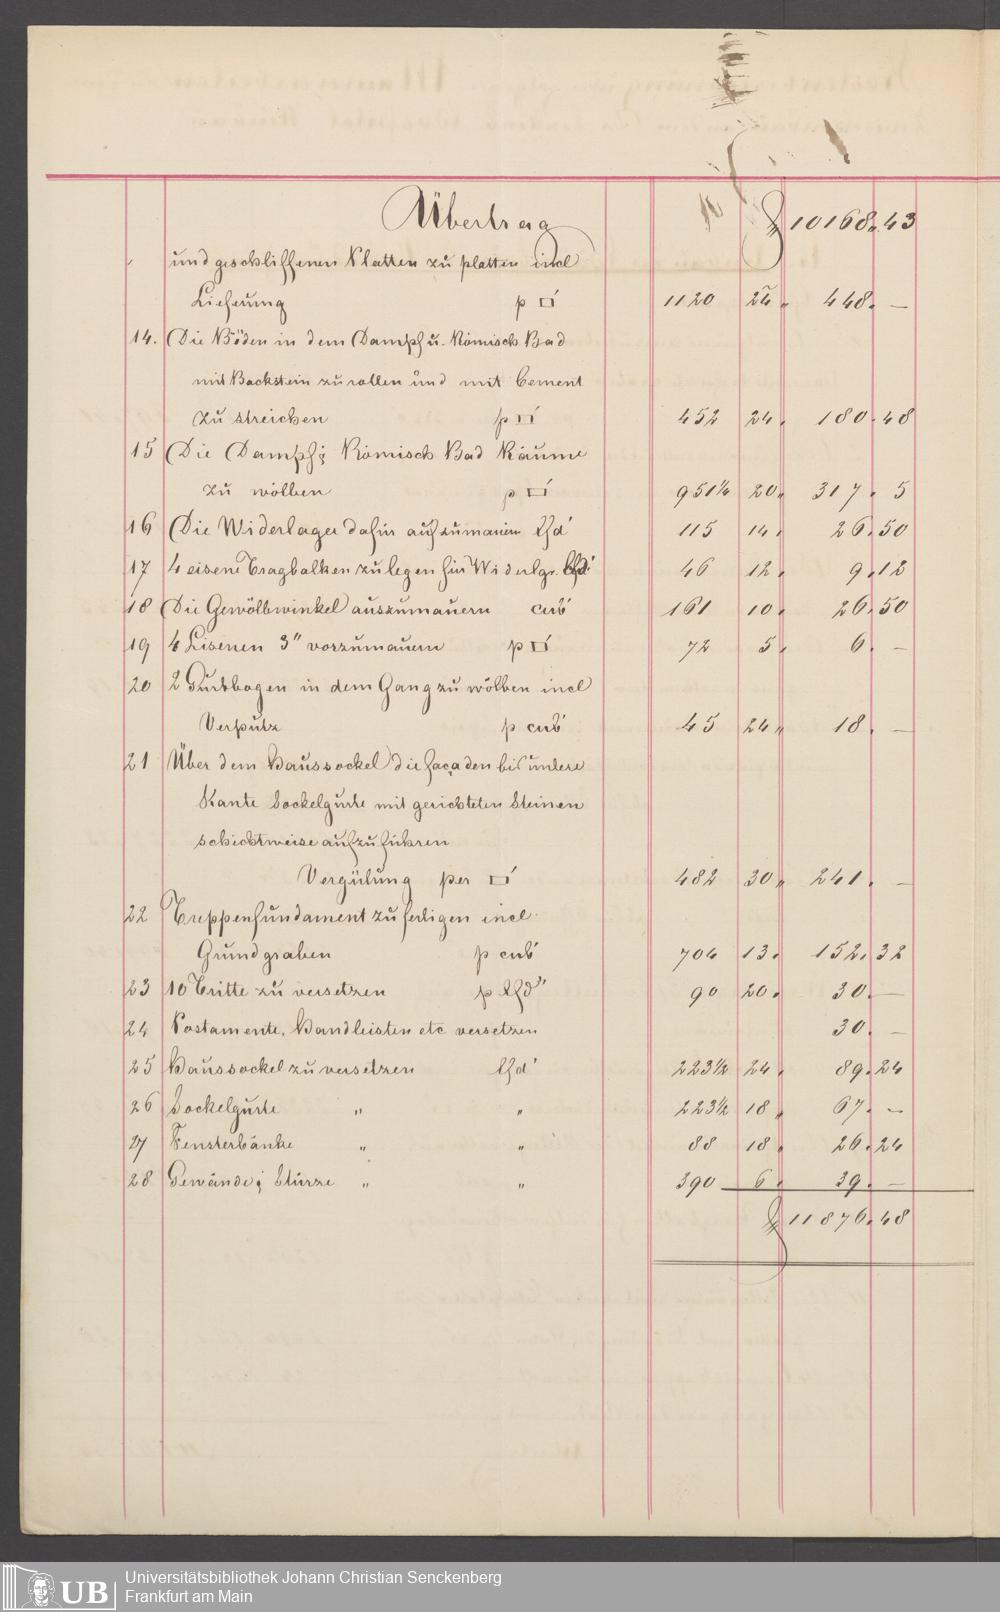 Übertrag f 10168. 43
und geschliffenen Platten zu platten incl
Lieferung p □' 1120 24 448. —
14. Die Böden in dem Dampf u. Römisch Bad
mit Backstein zu rollen und mit Cement
zu streichen p □' 452 24. 180. 48
15 Die Dampf & Römisch Bad Räume
zu wölben p □' 951¼ 20. 317. 5
16 Die Widerlager dafür aufzumauern lfd' 115 14. 26. 50
17 4 eiserne Tragbalken zu legen für Widerlgr. lfd' 46 12. 9. 12
18 Die Gewölbwinkel auszumauern cub' 161 10. 26. 50
19 4 Lisenen 3" vorzumauern p □' 72 5. 6. —
20 2 Gurtbogen in dem Gang zu wölben incl
Verputz p cub' 45 24 18. —
21 Über dem Haussockel die Façaden bis untere
Kante Sockelgurte mit gerichteten Steinen
schichtweise aufzuführen
Vergütung per □' 482 30 241. —
22 Treppenfundament zu fertigen incl.
Grundgraben p cub' 704 13. 152. 32
23 10 Tritte zu versetzen p lfd' 90 20. 30. —
24 Postamente, Handleisten etc versetzen 30. —
25 Haussockel zu versetzen lfd' 223½ 24. 89. 24
26 Sockelgurte " " 223½ 18. 67. —
27 Fensterbänke " " 88 18. 26. 24
28 Gewände & Stürze " " 390 6. 39. —
f 11876. 48
UB Universitätsbibliothek Johann Christian Senckenberg
Frankfurt am Main